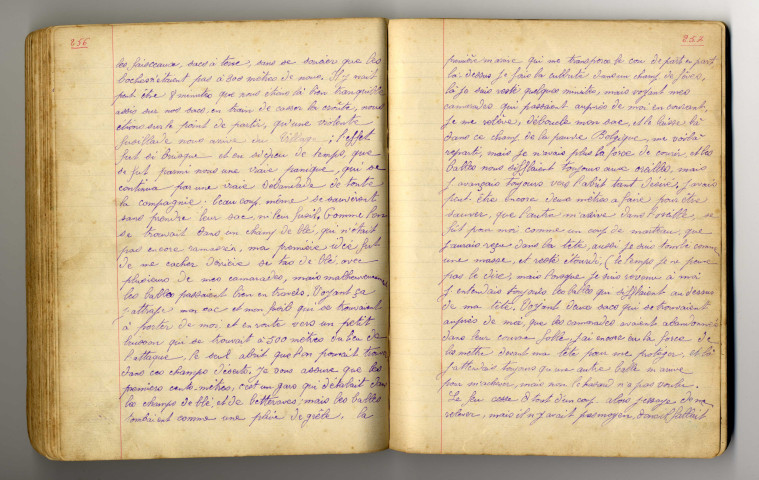 256
les faisceaux, sacs à terre, sans se soucier que les
boches n'étaient pas à 300 mètres de nous. Il y avait
peut être 8 minutes que nous étions là bien tranquilles
assis sur nos sacs en train de casser la croûte, nous
étions sur le point de partir, qu'une violente
fusillade nous arriva du village ; l'effet
fut si brusque et en si peu de temps, que
se fut parmi nous une vraie panique, qui se
continua par une vraie débandade de toute
la compagnie. beaucoup même se sauvèrent
sans prendre leur sac, ni leur fusil. Comme l'on
se trouvait dans un champ de blé, qui n'était
pas encore ramassé, ma première idée fut
de me cacher derrière se tas de blé avec
plusieurs de mes camarades, mais malheureusement
les balles passaient bien en travers. Voyant ça
j'attrape mon sac et mon fusil qui se trouvaient
à porter de moi, et en route vers un petit
buisson qui se trouvait à 500 mètres du lieu de
l'attaque, le seul abrit que l'on pouvait trouver
dans ces champs déserts. Je vous assure que les
premiers cents mètres, c'est un gars qui détalait dans
les champs de blé, et de betteraves, mais les balles
tombaient comme une pluie de grêle. la
257
première m'arrive qui me transperce le cou de part en part
là-dessus je fais la culbute dans un champ de fèves,
là je suis resté quelques minutes, mais voyant mes
camarades qui passaient auprès de moi en courant,
je me relève, déboucle mon sac, et le laisse là
dans ce champ de la pauvre Belgique, me voilà
reparti, mais je n'avais plus la force de courir, et les
balles nous sifflaient toujours aux oreilles, mais
j'avançais toujours vers l'abrit tant désiré, j'avais
peut-être encore deux mètres à faire pour être
sauver, que l'autre m'arrive dans l'oreille, se
fut pour moi comme un coup de marteau que
j'aurais reçue dans la tête, aussi je suis tombé comme
une masse, et resté étourdi, (le temps je ne pourrai
pas le dire, mais lorsque je suis revenu à moi
j'entendais toujours les balles qui sifflaient au dessus
de ma tête. Voyant deux sacs qui se trouvaient
auprès de moi, que les camarades avaient abandonnés
dans leur course folle, j'ai encore eu la force de
les mettre devant ma tête pour me protéger, et là
j'attendais toujours qu'une autre balle m'arrive
pour m'achever, mais non le hasard n'a pas voulu.
Le feu cesse tout d'un coup, alors j'essaye de me
relever, mais il n'y avait pas moyen,